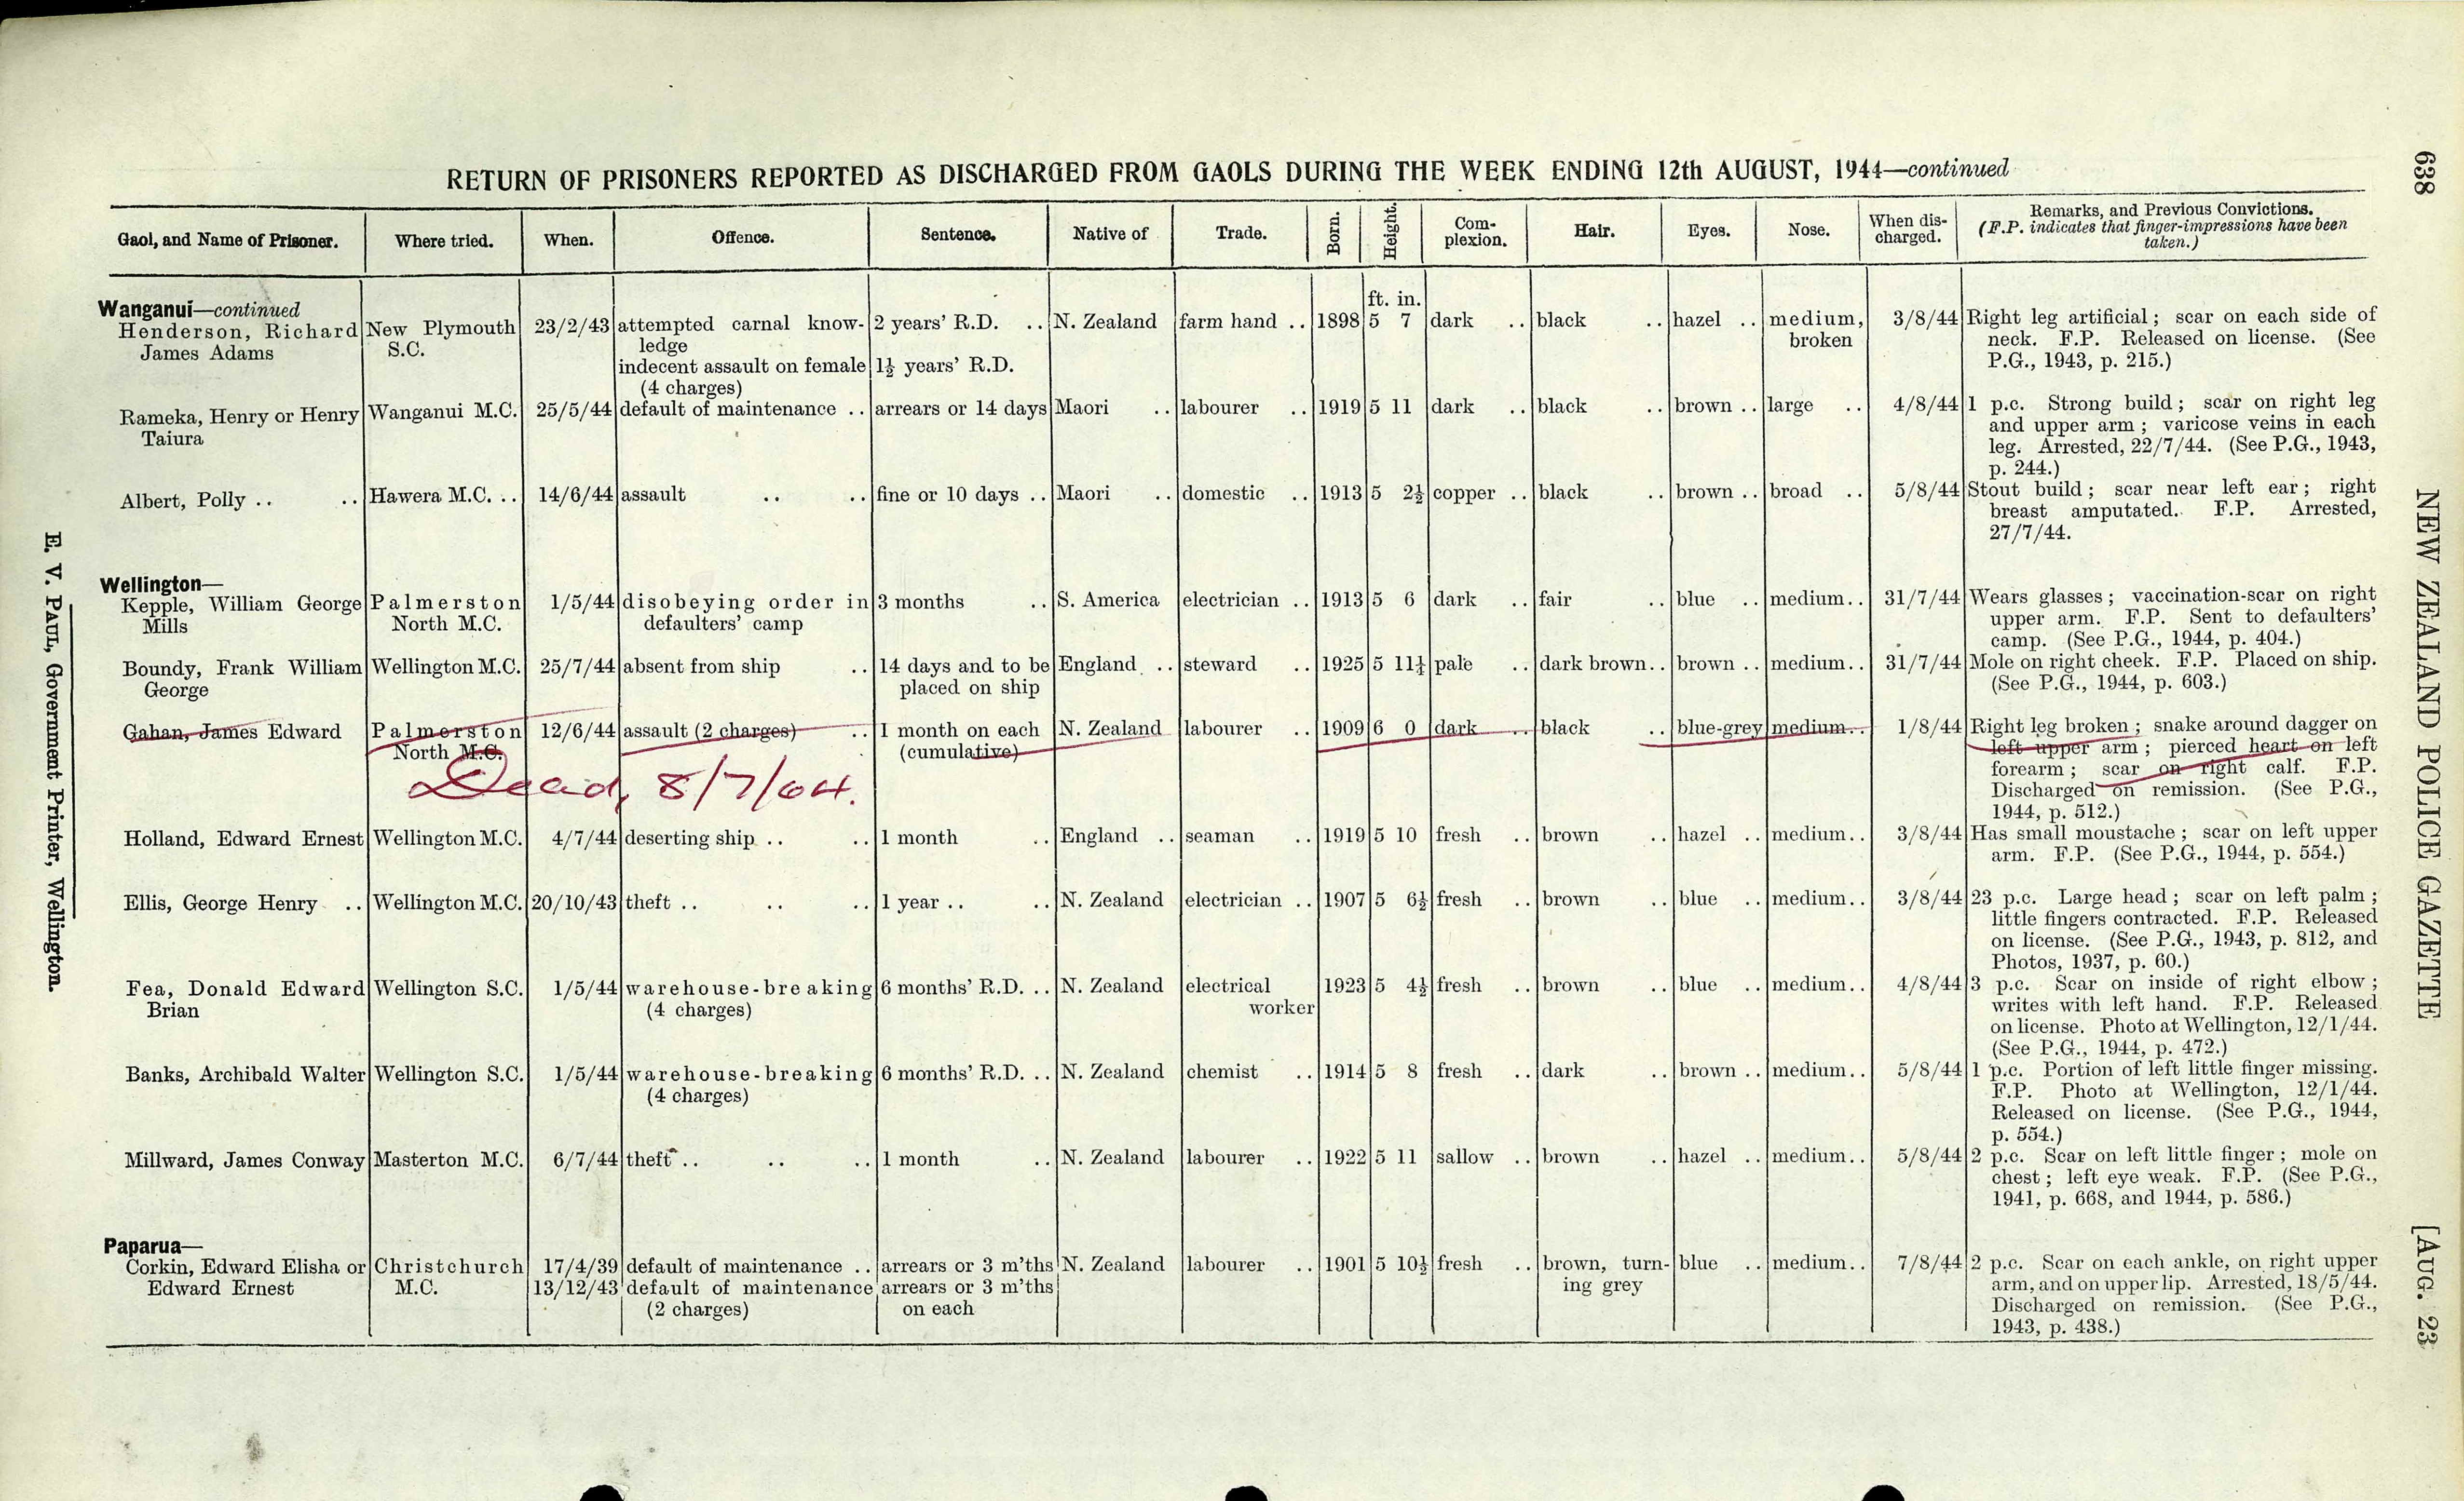 RETURN OF PRISONERS REPORTED AS DISCHARGED FROM GAOLS DURING THE WEEK ENDING 12th AUGUST, 1944—continued
Gaol, and Name of Prisoner. Where tried. When. Offence. Sentence. Native of Trade. Born. Height. Com- Hair. Eyes. Nose. When dis- Remarks, and Previous Convictions.
plexion. charged. (F.P. indicates that finger-impressions have been
taken.)
Wanganui—continued ft. in.
Henderson, Richard New Plymouth 23/2/43 attempted carnal know- 2 years' R.D. .. N. Zealand farm hand .. 1898 5 7 dark .. black .. hazel .. medium, 3/8/44 Right leg artificial; scar on each side of
James Adams S.C. ledge broken neck. F.P. Released on license. (See
indecent assault on female 1½ years' R.D. P.G., 1943, p. 215.)
(4 charges)
Rameka, Henry or Henry Wanganui M.C. 25/5/44 default of maintenance .. arrears or 14 days Maori .. labourer .. 1919 5 11 dark .. black .. brown .. large .. 4/8/44 1 p.c. Strong build; scar on right leg
Taiura and upper arm; varicose veins in each
leg. Arrested, 22/7/44. (See P.G., 1943,
p. 244.)
Albert, Polly .. .. Hawera M.C. .. 14/6/44 assault .. .. fine or 10 days .. Maori .. domestic .. 1913 5 2½ copper .. black .. brown .. broad .. 5/8/44 Stout build; scar near left ear; right
breast amputated. F.P. Arrested,
27/7/44.
Wellington—
Kepple, William George Palmerston 1/5/44 disobeying order in 3 months .. S. America electrician .. 1913 5 6 dark .. fair .. blue .. medium.. 31/7/44 Wears glasses; vaccination-scar on right
Mills North M.C. defaulters' camp upper arm. F.P. Sent to defaulters'
camp. (See P.G., 1944, p. 404.)
Boundy, Frank William Wellington M.C. 25/7/44 absent from ship .. 14 days and to be England .. steward .. 1925 5 11¼ pale .. dark brown.. brown .. medium.. 31/7/44 Mole on right cheek. F.P. Placed on ship.
George placed on ship (See P.G., 1944, p. 603.)
Gahan, James Edward Palmerston 12/6/44 assault (2 charges) .. 1 month on each N. Zealand labourer .. 1909 6 0 dark .. black .. blue-grey medium.. 1/8/44 Right leg broken; snake around dagger on
North M.C. (cumulative) left upper arm; pierced heart on left
Dead, 8/7/64. forearm; scar on right calf. F.P.
Discharged on remission. (See P.G.,
1944, p. 512.)
Holland, Edward Ernest Wellington M.C. 4/7/44 deserting ship .. .. 1 month .. England .. seaman .. 1919 5 10 fresh .. brown .. hazel .. medium.. 3/8/44 Has small moustache; scar on left upper
arm. F.P. (See P.G., 1944, p. 554.)
Ellis, George Henry .. Wellington M.C. 20/10/43 theft .. .. .. 1 year .. .. N. Zealand electrician .. 1907 5 6½ fresh .. brown .. blue .. medium.. 3/8/44 23 p.c. Large head; scar on left palm;
little fingers contracted. F.P. Released
on license. (See P.G., 1943, p. 812, and
Photos, 1937, p. 60.)
Fea, Donald Edward Wellington S.C. 1/5/44 warehouse-breaking 6 months' R.D. .. N. Zealand electrical 1923 5 4½ fresh .. brown .. blue .. medium.. 4/8/44 3 p.c. Scar on inside of right elbow;
Brian (4 charges) worker writes with left hand. F.P. Released
on license. Photo at Wellington, 12/1/44.
(See P.G., 1944, p. 472.)
Banks, Archibald Walter Wellington S.C. 1/5/44 warehouse-breaking 6 months' R.D. .. N. Zealand chemist .. 1914 5 8 fresh .. dark .. brown .. medium.. 5/8/44 1 p.c. Portion of left little finger missing.
(4 charges) F.P. Photo at Wellington, 12/1/44.
Released on license. (See P.G., 1944,
p. 554.)
Millward, James Conway Masterton M.C. 6/7/44 theft .. .. .. 1 month .. N. Zealand labourer .. 1922 5 11 sallow .. brown .. hazel .. medium.. 5/8/44 2 p.c. Scar on left little finger; mole on
chest; left eye weak. F.P. (See P.G.,
1941, p. 668, and 1944, p. 586.)
Paparua—
Corkin, Edward Elisha or Christchurch 17/4/39 default of maintenance .. arrears or 3 m'ths N. Zealand labourer .. 1901 5 10½ fresh .. brown, turn- blue .. medium.. 7/8/44 2 p.c. Scar on each ankle, on right upper
Edward Ernest M.C. 13/12/43 default of maintenance arrears or 3 m'ths ing grey arm, and on upper lip. Arrested, 18/5/44.
(2 charges) on each Discharged on remission. (See P.G.,
1943, p. 438.)
E. V. PAUL, Government Printer, Wellington.
638
NEW ZEALAND POLICE GAZETTE
[AUG. 23